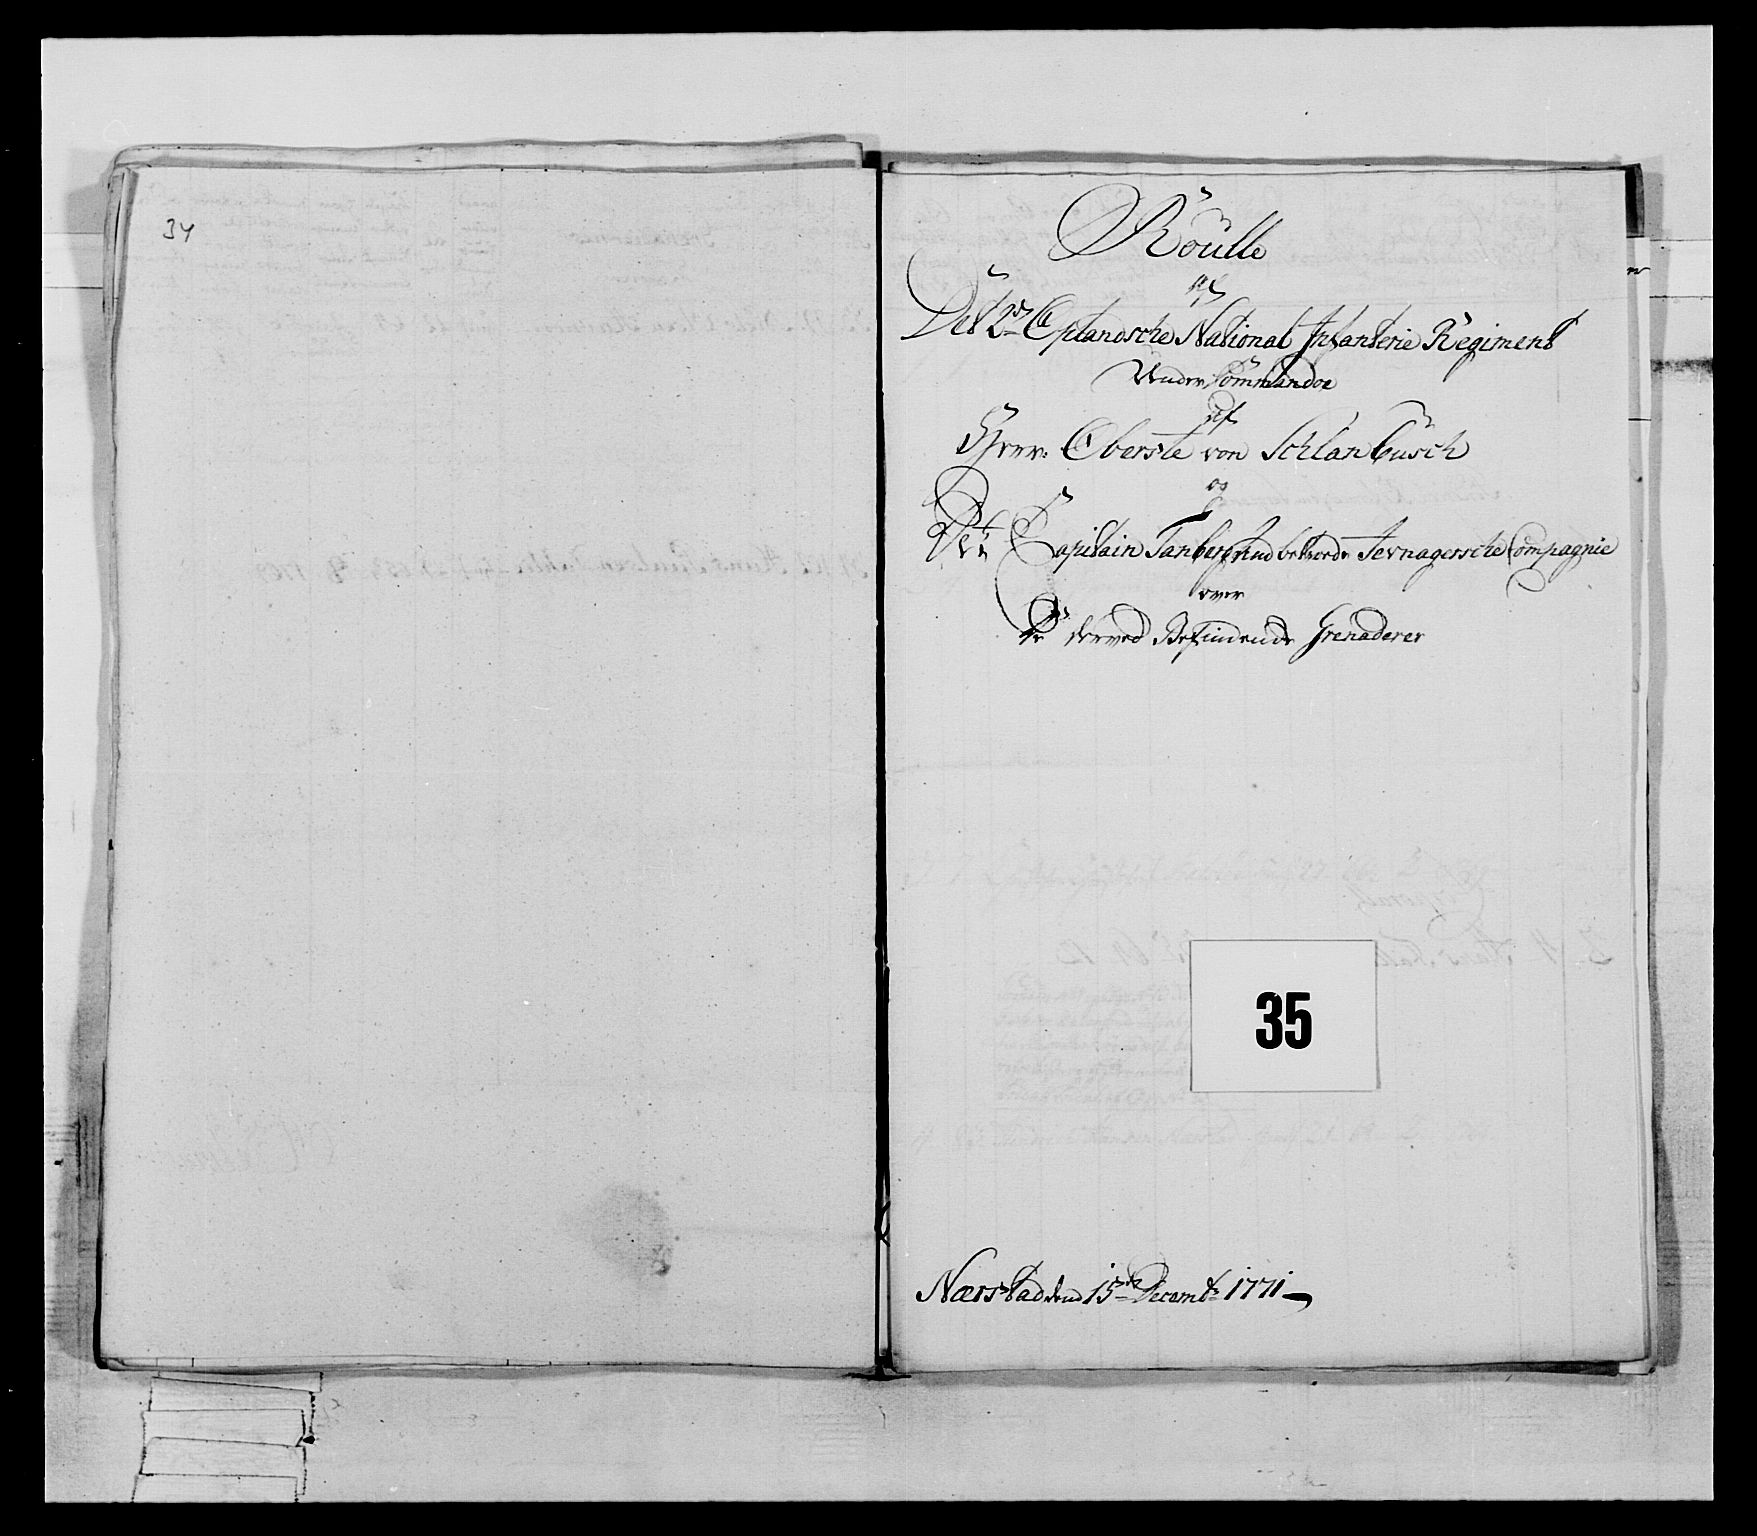 34
Roulle
af
Det 2det Oplandsche National Infanterie Regiment
Under Commandoe
af
Hrer Oberste von Schlanbusch
og
Det Capitain Tanberg underhørende Jevnagersche Compagnie
over
De derved Befindende Grenaderer
35
Nærstad dend 15de Decembr 1771